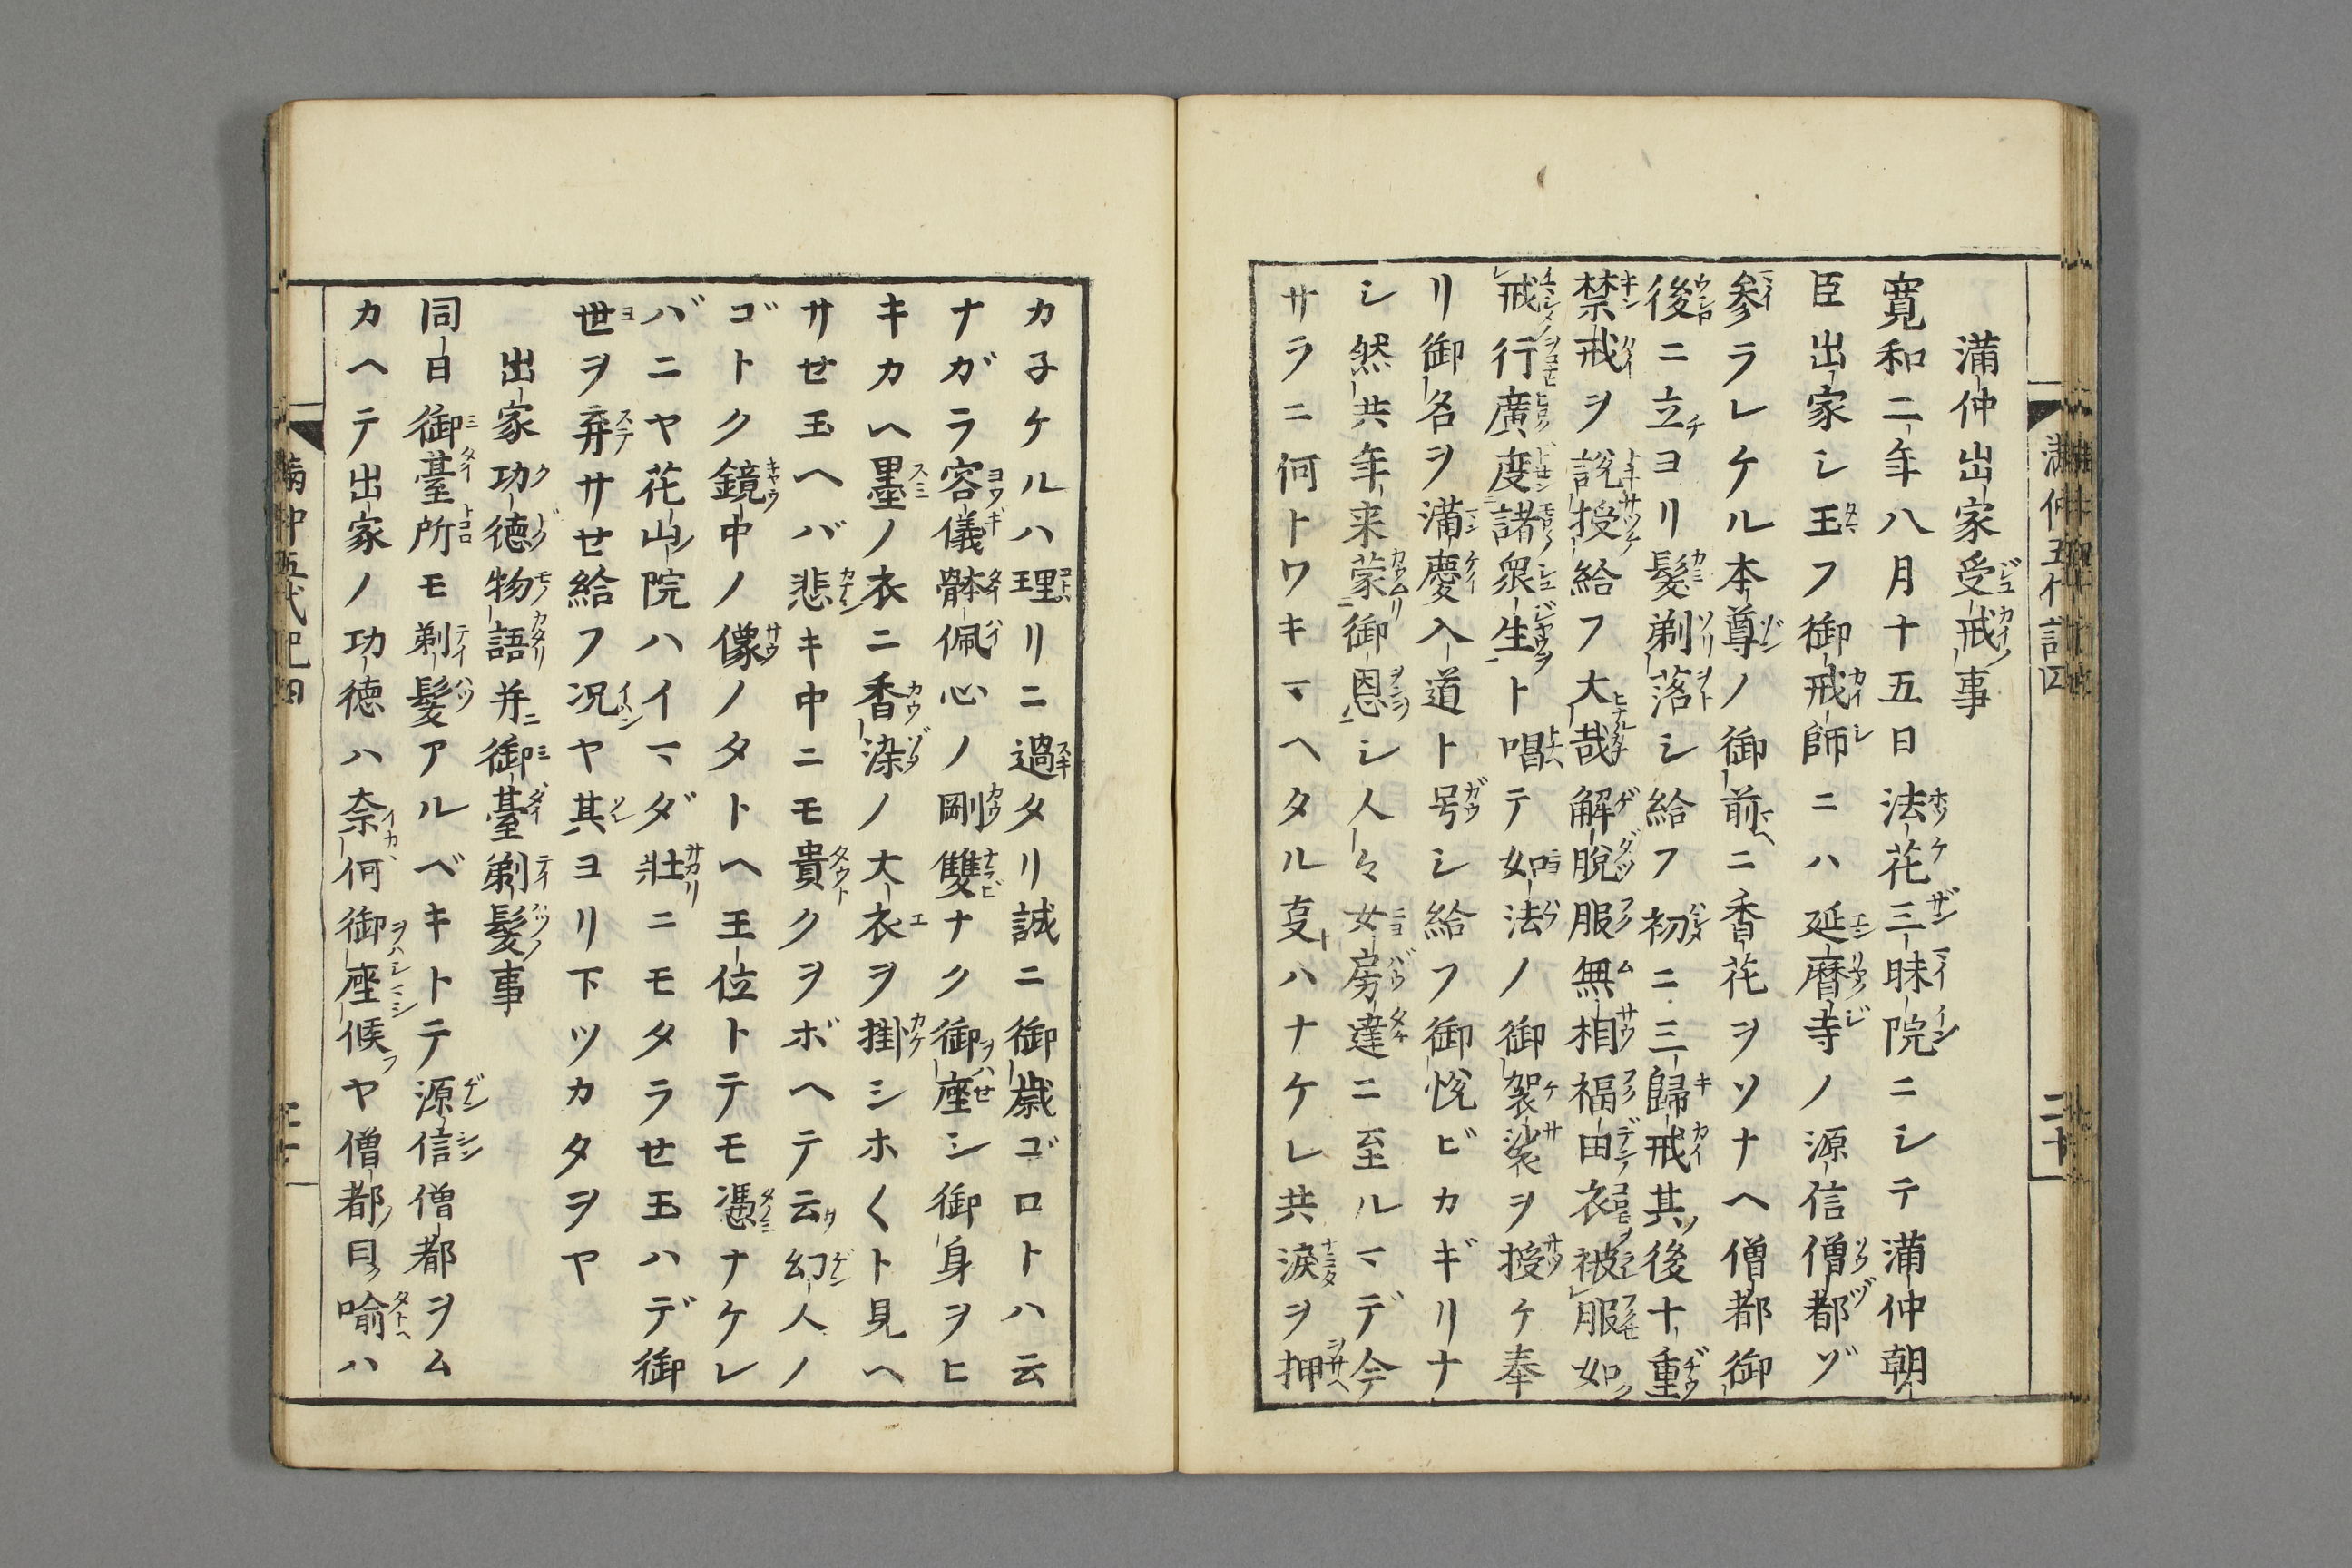 満仲出家受戒事
寛和二年八月十五日法花三昧院ニシテ満仲朝
臣出家シ玉フ御戒師ニハ延暦寺ノ源信僧都ゾ
参ラレケル本尊ノ御前ニ香花ヲソナヘ僧都御
後ニ立ヨリ髪剃落シ給フ初ニ三歸戒其後十重
禁戒ヲ説授給フ大哉解脱服無相福田衣被服如
戒行廣度諸衆生ト唱テ如法ノ御袈裟ヲ授ケ奉
リ御名ヲ満慶入道ト号シ給フ御悦ビカギリナ
シ然共年来蒙御恩シ人々女房達ニ至ルマデ今
サラニ何トワキマヘタル夏ハナケレ共涙ヲ押
カ子ケルハ理リニ過タリ誠ニ御歳ゴロトハ云
ナガラ容儀骵佩心ノ剛雙ナク御座シ御身ヲヒ
キカヘ墨ノ衣ニ香染ノ大衣ヲ掛シホ〱ト見ヘ
サせ玉ヘバ悲キ中ニモ貴クヲボヘテ云幻人ノ
ゴトク鏡中ノ像ノタトヘ王位トテモ憑ナケレ
バニヤ花山院ハイマダ壯ニモタラせ玉ハデ御
世ヲ弃サせ給フ况ヤ其ヨリ下ツカタヲヤ
出家功德物語并御臺剃髪事
同日御臺所モ剃髪アルベキトテ源信僧都ヲム
カヘテ出家ノ功徳ハ奈何御座候ヤ僧都曰喻ハ
満仲五代記四
二十